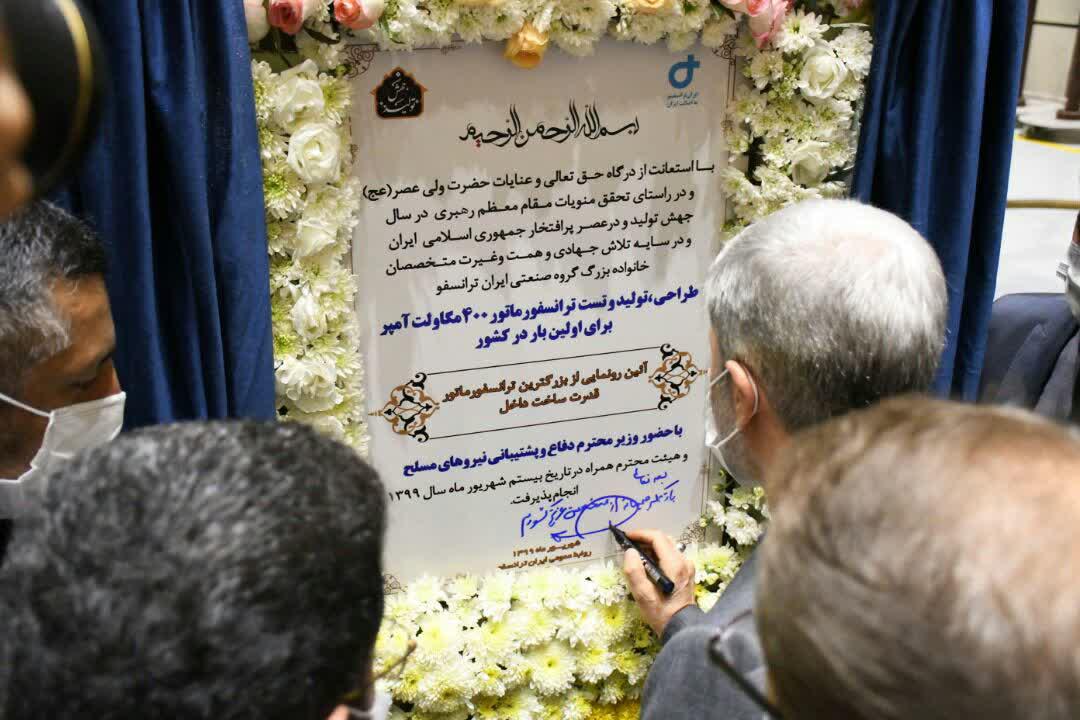 جهش تولید
ایران ترانسفو
بسم الله الرحمن الرحیم
با استعانت از درگاه حق تعالی و عنایات حضرت ولی عصر(عج)
و در راستای تحقق منویات مقام معظم رهبری در سال
جهش تولید و درعصر پرافتخار جمهوری اسلامی ایران
و در سایه تلاش جهادی و همت وغیرت متخصصان
خانواده بزرگ گروه صنعتی ایران ترانسفو
طراحی، تولید و تست ترانسفورماتور ۴۰۰ مگاولت آمپر
برای اولین بار در کشور
آئین رونمایی از بزرگترین ترانسفورماتور
قدرت ساخت داخل
با حضور وزیر محترم دفاع و پشتیبانی نیروهای مسلح
و هیئت محترم همراه در تاریخ بیستم شهریور ماه سال ۱۳۹۹
انجام پذیرفت.
بسمه تعالی
شهریور ماه ۱۳۹۹
روابط عمومی ایران ترانسفو